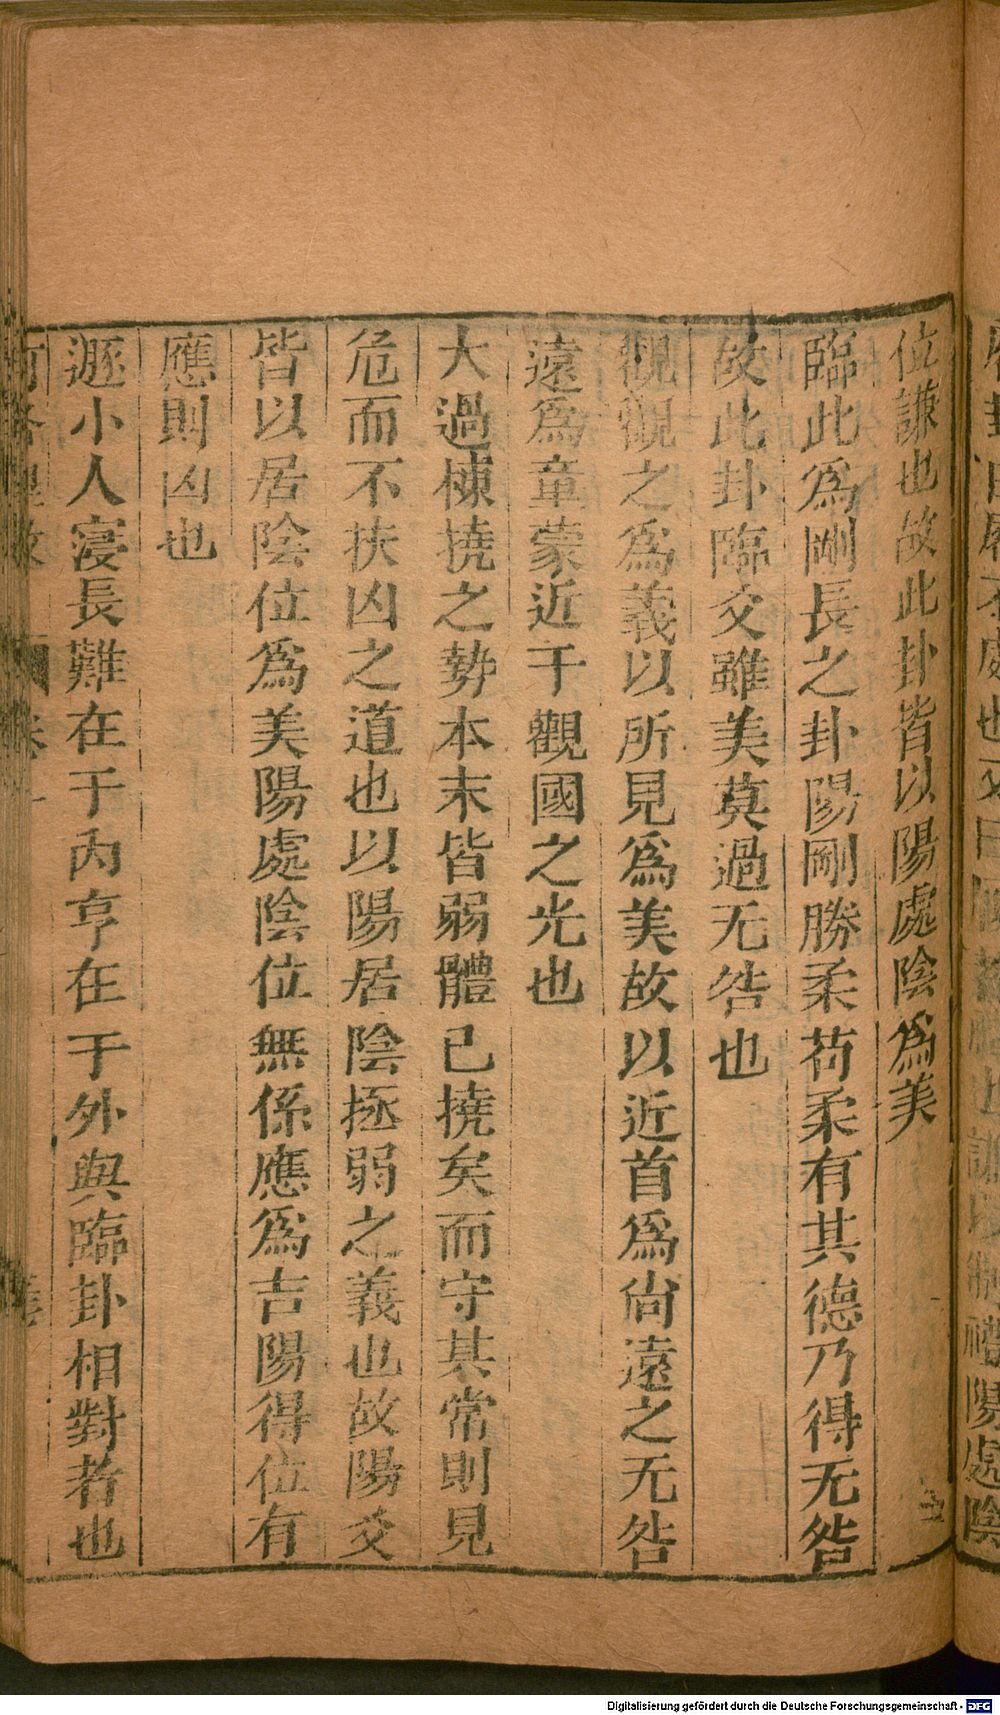 位謙也故此卦皆以陽處陰爲美
臨此爲剛長之卦陽剛勝柔苟柔有其德乃得无咎
故此卦臨爻雖美莫過无咎也
觀觀之爲義以所見爲美故以近首爲尙遠之无咎
遠爲童蒙近干觀國之光也
大過棟撓之勢本末皆弱體已撓矣而守其常則見
危而不扶凶之道也以陽居陰拯弱之義也故陽爻
皆以居陰位爲美陽處陰位無係應爲吉陽得位有
應則凶也
遯小人寖長難在于內亨在于外與臨卦相對者也
Digitalisierung gefördert durch die Deutsche Forschungsgemeinschaft - DFG